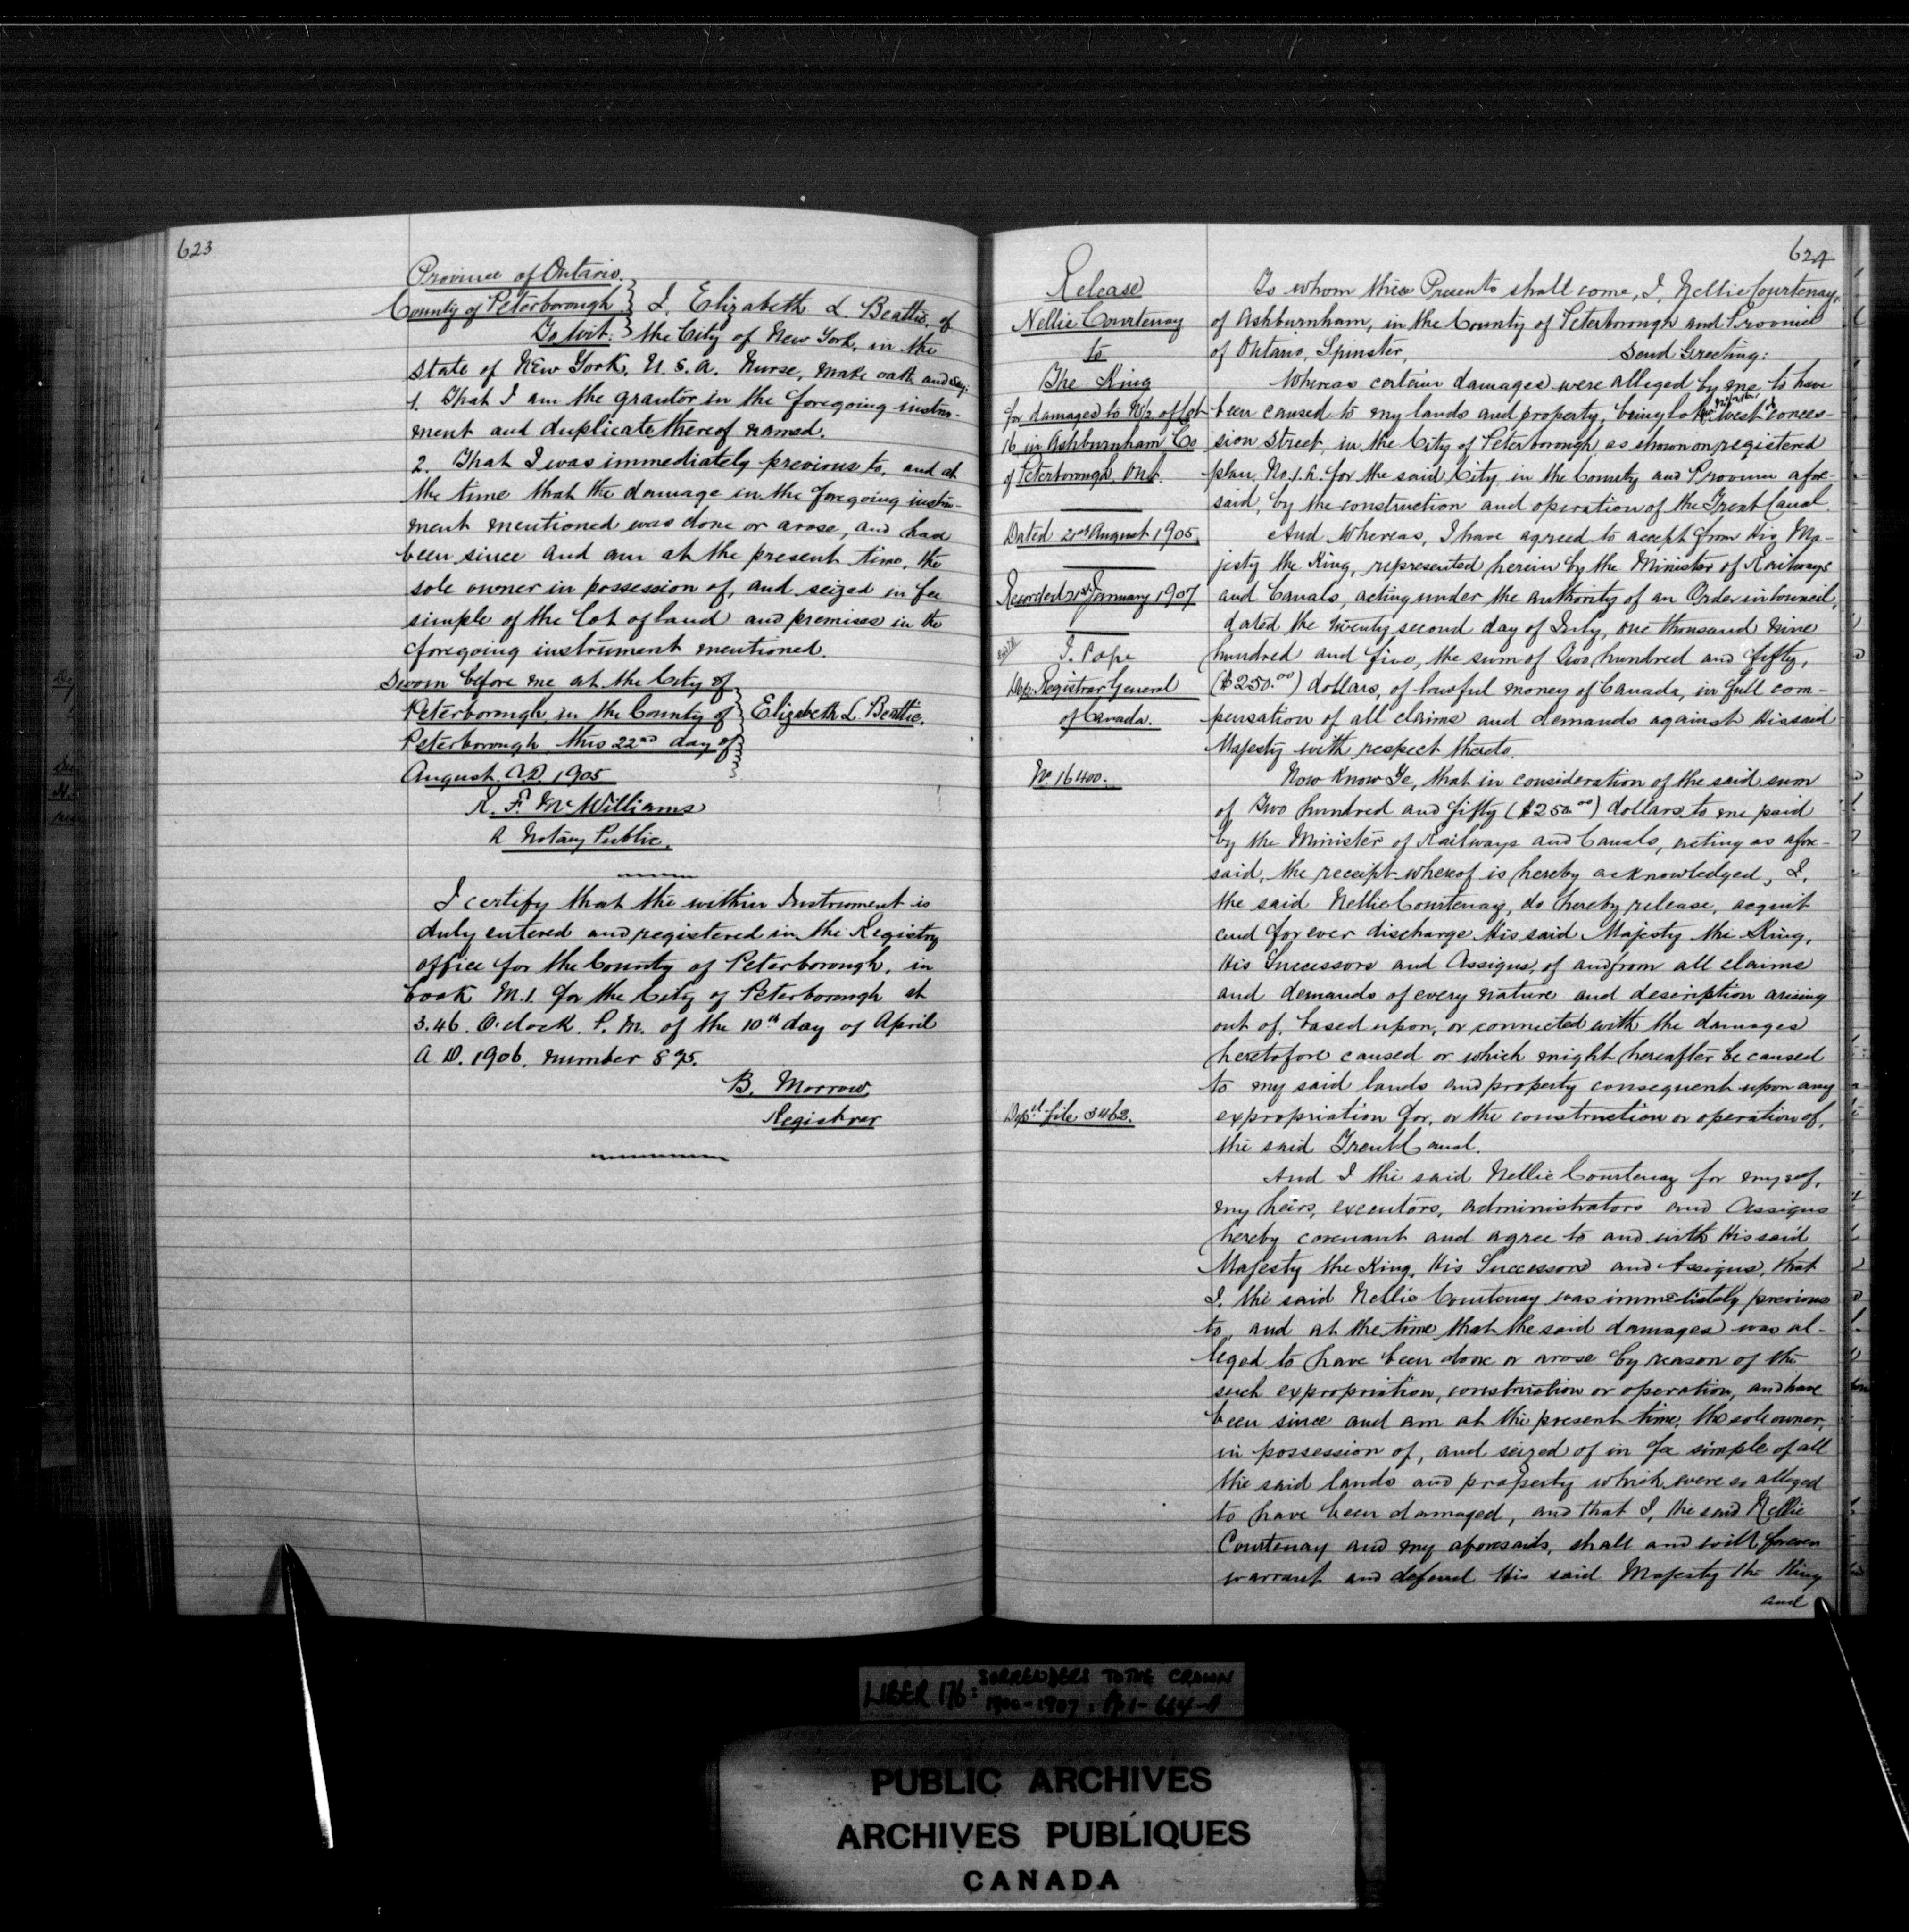 623
Province of Ontario.
County of Peterborough } I, Elizabeth L. Beattie, of
To Wit: } the City of New York, in the
State of New York, U. S. A. Nurse, make oath and say:
1. That I am the grantor in the foregoing instru-
ment and duplicate thereof named.
2. That I was immediately previous to, and at
the time that the damage in the foregoing instru-
ment mentioned was done or arose, and have
been since and am at the present time, the
sole owner in possession of, and seized in fee
simple of the Lot of land and premises in the
foregoing instrument mentioned.
Sworn before me at the City of
Peterborough in the County of } Elizabeth L. Beattie.
Peterborough this 22nd day of
August. A.D. 1905
R. F. McWilliams
A Notary Public.
I certify that the within Instrument is
duly entered and registered in the Registry
office for the County of Peterborough, in
book M.1. for the City of Peterborough at
3.46. O'clock. P. M. of the 10th day of April
A. D. 1906. number 895.
B. Morrow
Registrar
624
Release
Nellie Courtenay
to
The King
for damages to N½ of Lot
16 in Ashburnham Co
of Peterborough, Ont.
Dated 21st August 1905.
Recorded 21st January 1907
J. Pope
Dep. Registrar General
of Canada.
No 16400.
Dept'l file 3462.
To whom these Presents shall come, I, Nellie Courtenay,
of Ashburnham, in the County of Peterborough and Province
of Ontario, Spinster, Send Greeting:
Whereas certain damages were alleged by me to have
been caused to my lands and property, being lot west conces-
sion Street, in the City of Peterborough, as shown on registered
plan, No. 1. A. for the said City in the County and Province afore-
said, by the construction and operation of the Trent Canal.
And Whereas, I have agreed to accept from His Ma-
jesty the King, represented herein by the Minister of Railways
and Canals, acting under the authority of an Order in Council,
dated the twenty second day of July, one thousand nine
hundred and five, the sum of Two hundred and fifty,
($250.00) dollars, of lawful money of Canada, in full com-
pensation of all claims and demands against His said
Majesty with respect thereto.
Now Know Ye, that in consideration of the said sum
of Two hundred and fifty ($250.00) dollars to me paid
by the Minister of Railways and Canals, acting as afore-
said, the receipt whereof is hereby acknowledged, I,
the said Nellie Courtenay, do hereby release, acquit
and forever discharge His said Majesty the King,
His Successors and Assigns, of and from all claims
and demands of every nature and description arising
out of, based upon, or connected with the damages
heretofore caused or which might hereafter be caused
to my said lands and property consequent upon any
expropriation for, or the construction or operation of,
the said Trent Canal.
And I the said Nellie Courtenay for myself,
my heirs, executors, administrators and Assigns
hereby covenant and agree to and with His said
Majesty the King, His Successors and Assigns, that
I, the said Nellie Courtenay was immediately previous
to, and at the time that the said damages was al-
leged to have been done or arose by reason of the
such expropriation, construction or operation, and have
been since and am at the present time, the sole owner,
in possession of, and seized of in fee simple of all
the said lands and property which were so alleged
to have been damaged, and that I, the said Nellie
Courtenay and my aforesaids, shall and will forever
warrant and defend His said Majesty the King
and
LIBER 176: SURRENDERS TO THE CROWN
1900-1907: Pp 1-664-A
PUBLIC ARCHIVES
ARCHIVES PUBLIQUES
CANADA